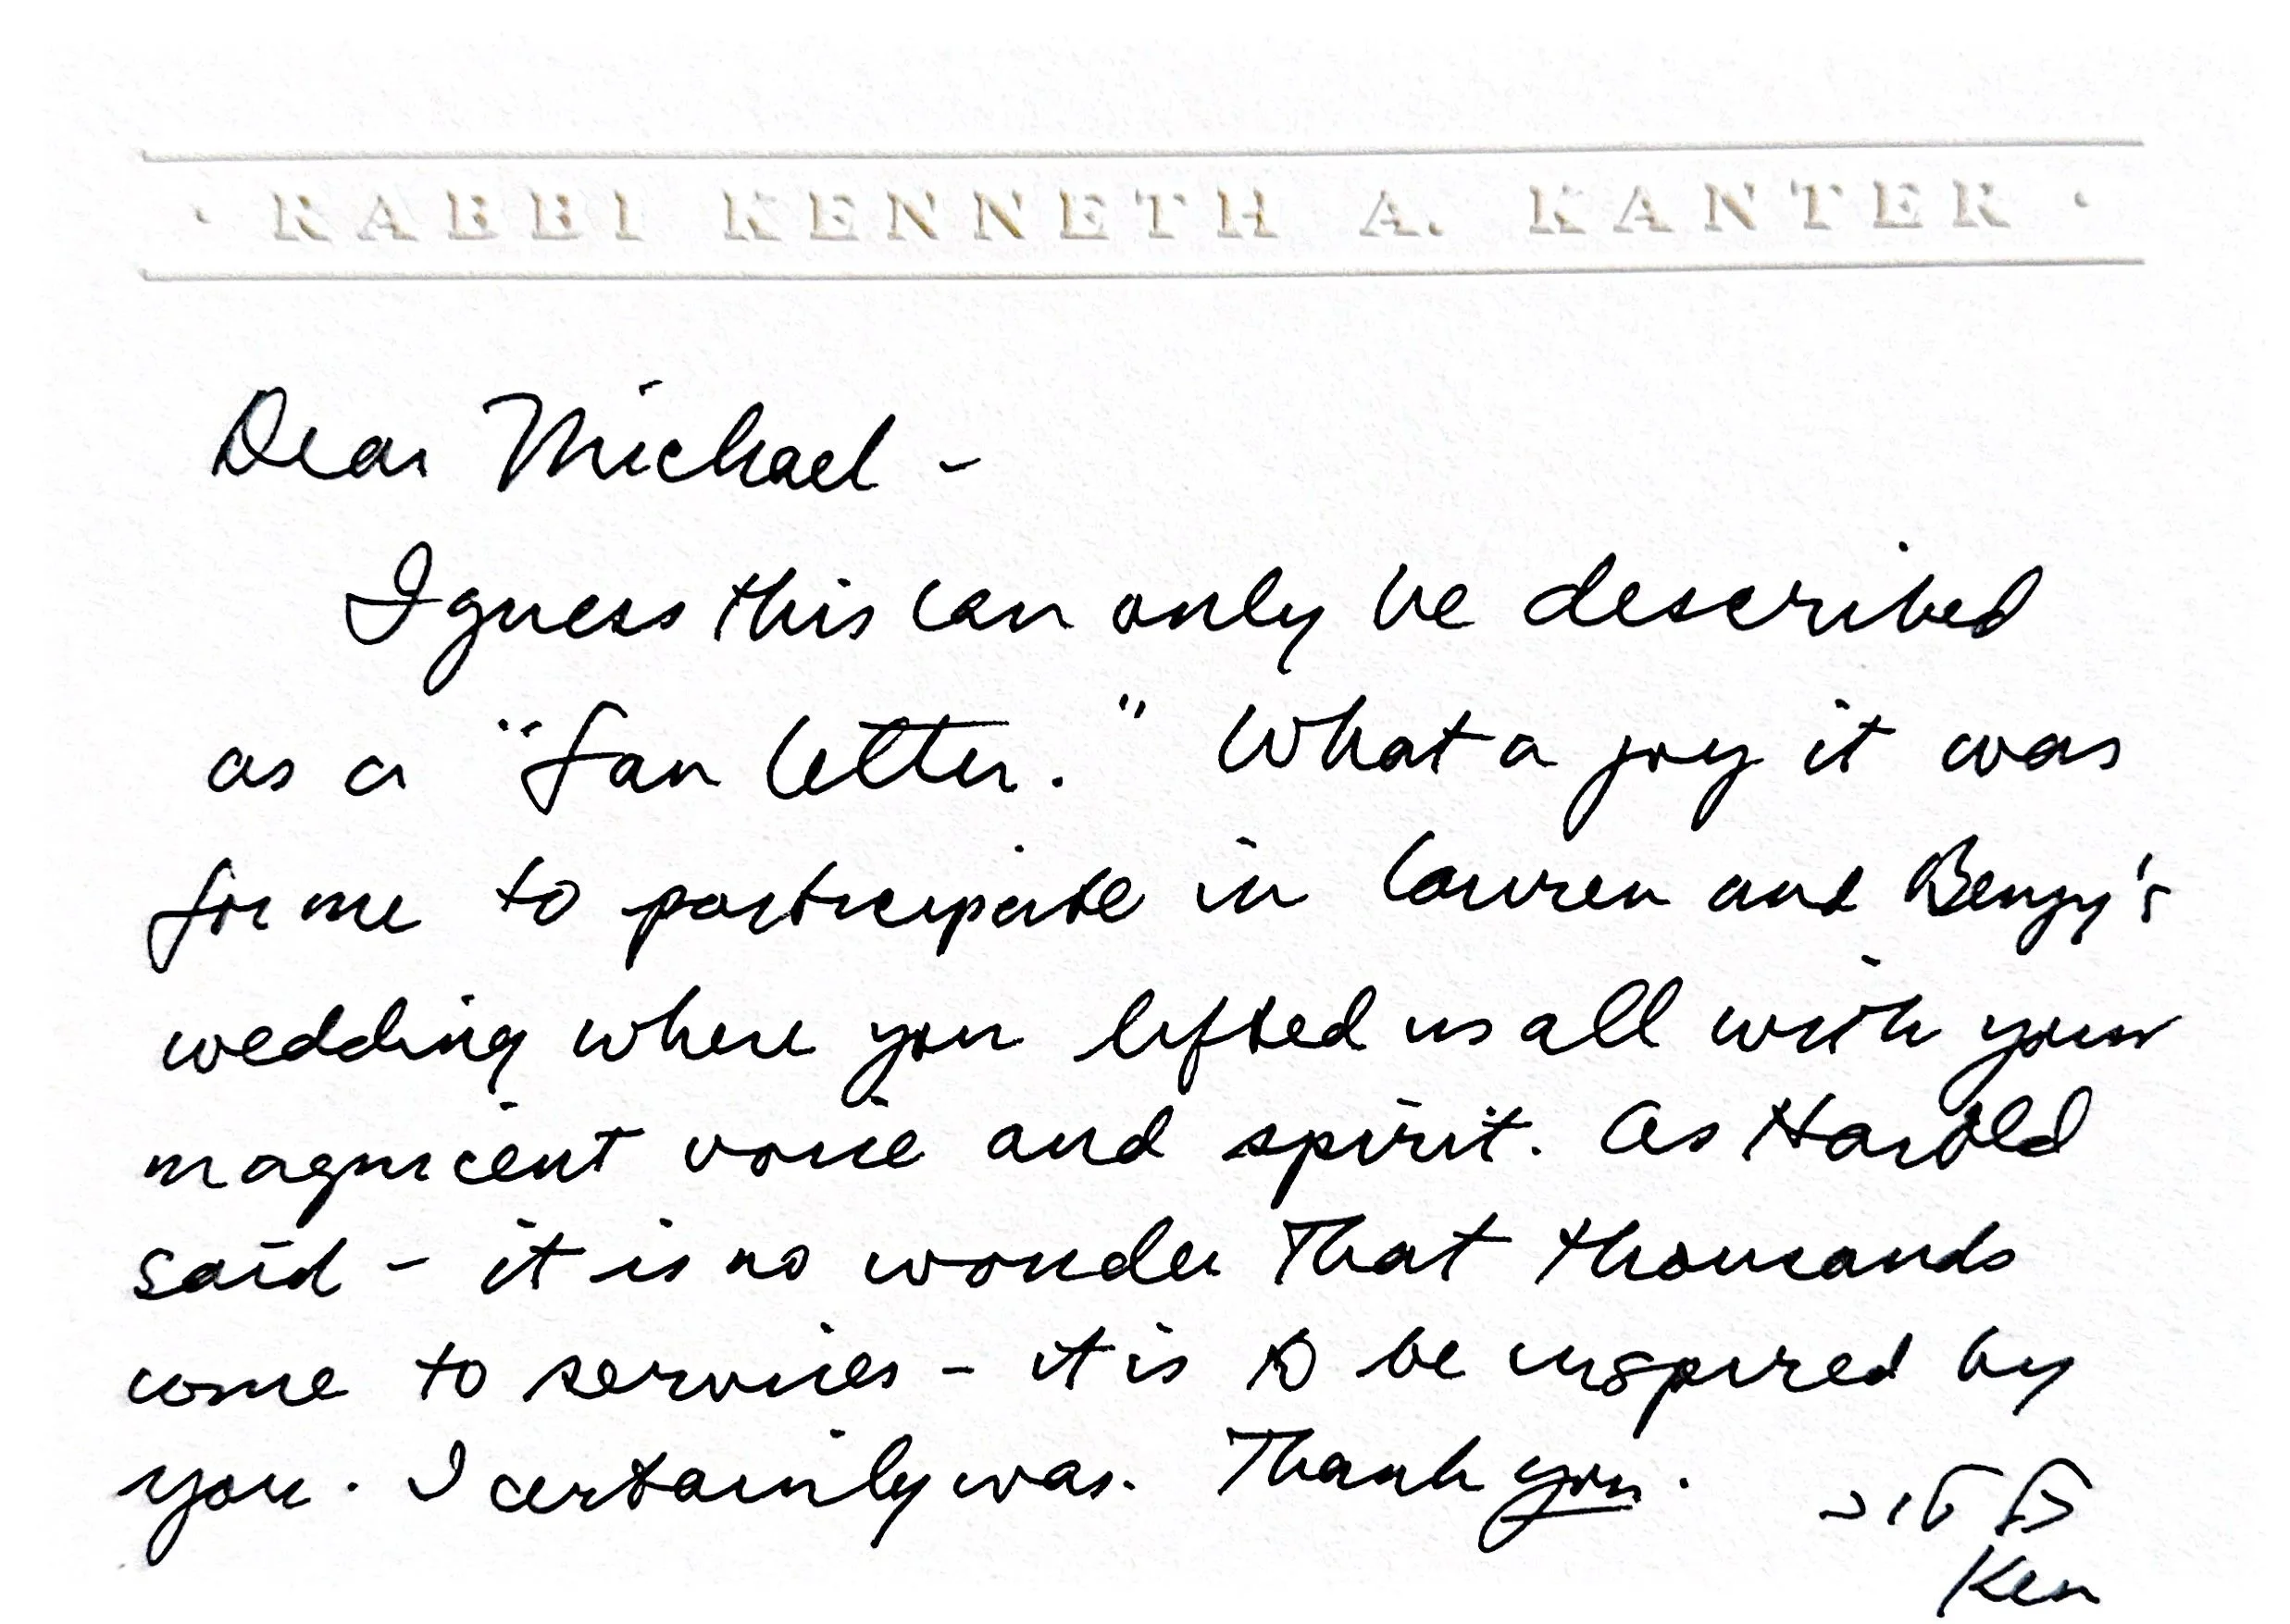 · RABBI KENNETH A. KANTER ·
Dear Michael -
I guess this can only be described
as a "fan letter." What a joy it was
for me to participate in Lauren and Benjy's
wedding where you lifted us all with your
magnicent voice and spirit. As Harold
said - it is no wonder that thousands
come to services - it is to be inspired by
you. I certainly was. Thank you.
Ken